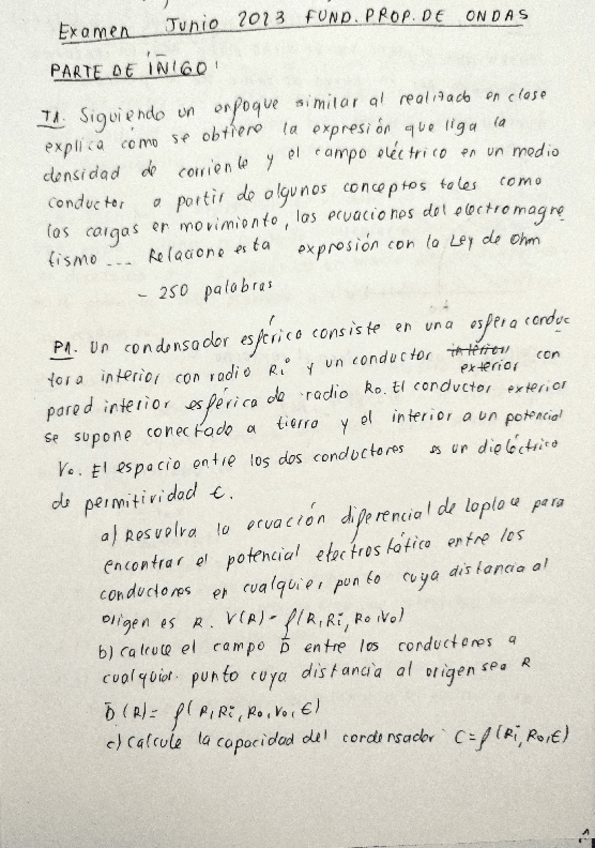 Examen Junio 2023 FUND. PROP. DE ONDAS
PARTE DE IÑIGO:
T1. Siguiendo un enfoque similar al realizado en clase
explica como se obtiene la expresión que liga la
densidad de corriente y el campo eléctrico en un medio
conductor a partir de algunos conceptos tales como
las cargas en movimiento, las ecuaciones del electromagne
tismo ... Relacione esta expresión con la Ley de Ohm
- 250 palabras
P1. Un condensador esférico consiste en una esfera conduc
tora interior con radio Ri y un conductor interior exterior con
pared interior esférica de radio Ro. El conductor exterior
se supone conectado a tierra y el interior a un potencial
Vo. El espacio entre los dos conductores es un dieléctrico
de permitividad ϵ.
a) Resuelva la ecuación diferencial de laplace para
encontrar el potencial electrostático entre los
conductores en cualquier punto cuya distancia al
origen es R. V(R) = f(R, Ri, Ro, Vo)
b) calcule el campo D̄ entre los conductores a
cualquier punto cuya distancia al origen sea R
D̄(R) = f(R, Ri, Ro, Vo, ϵ)
c) Calcule la capacidad del condensador C = f(Ri, Ro, ϵ)